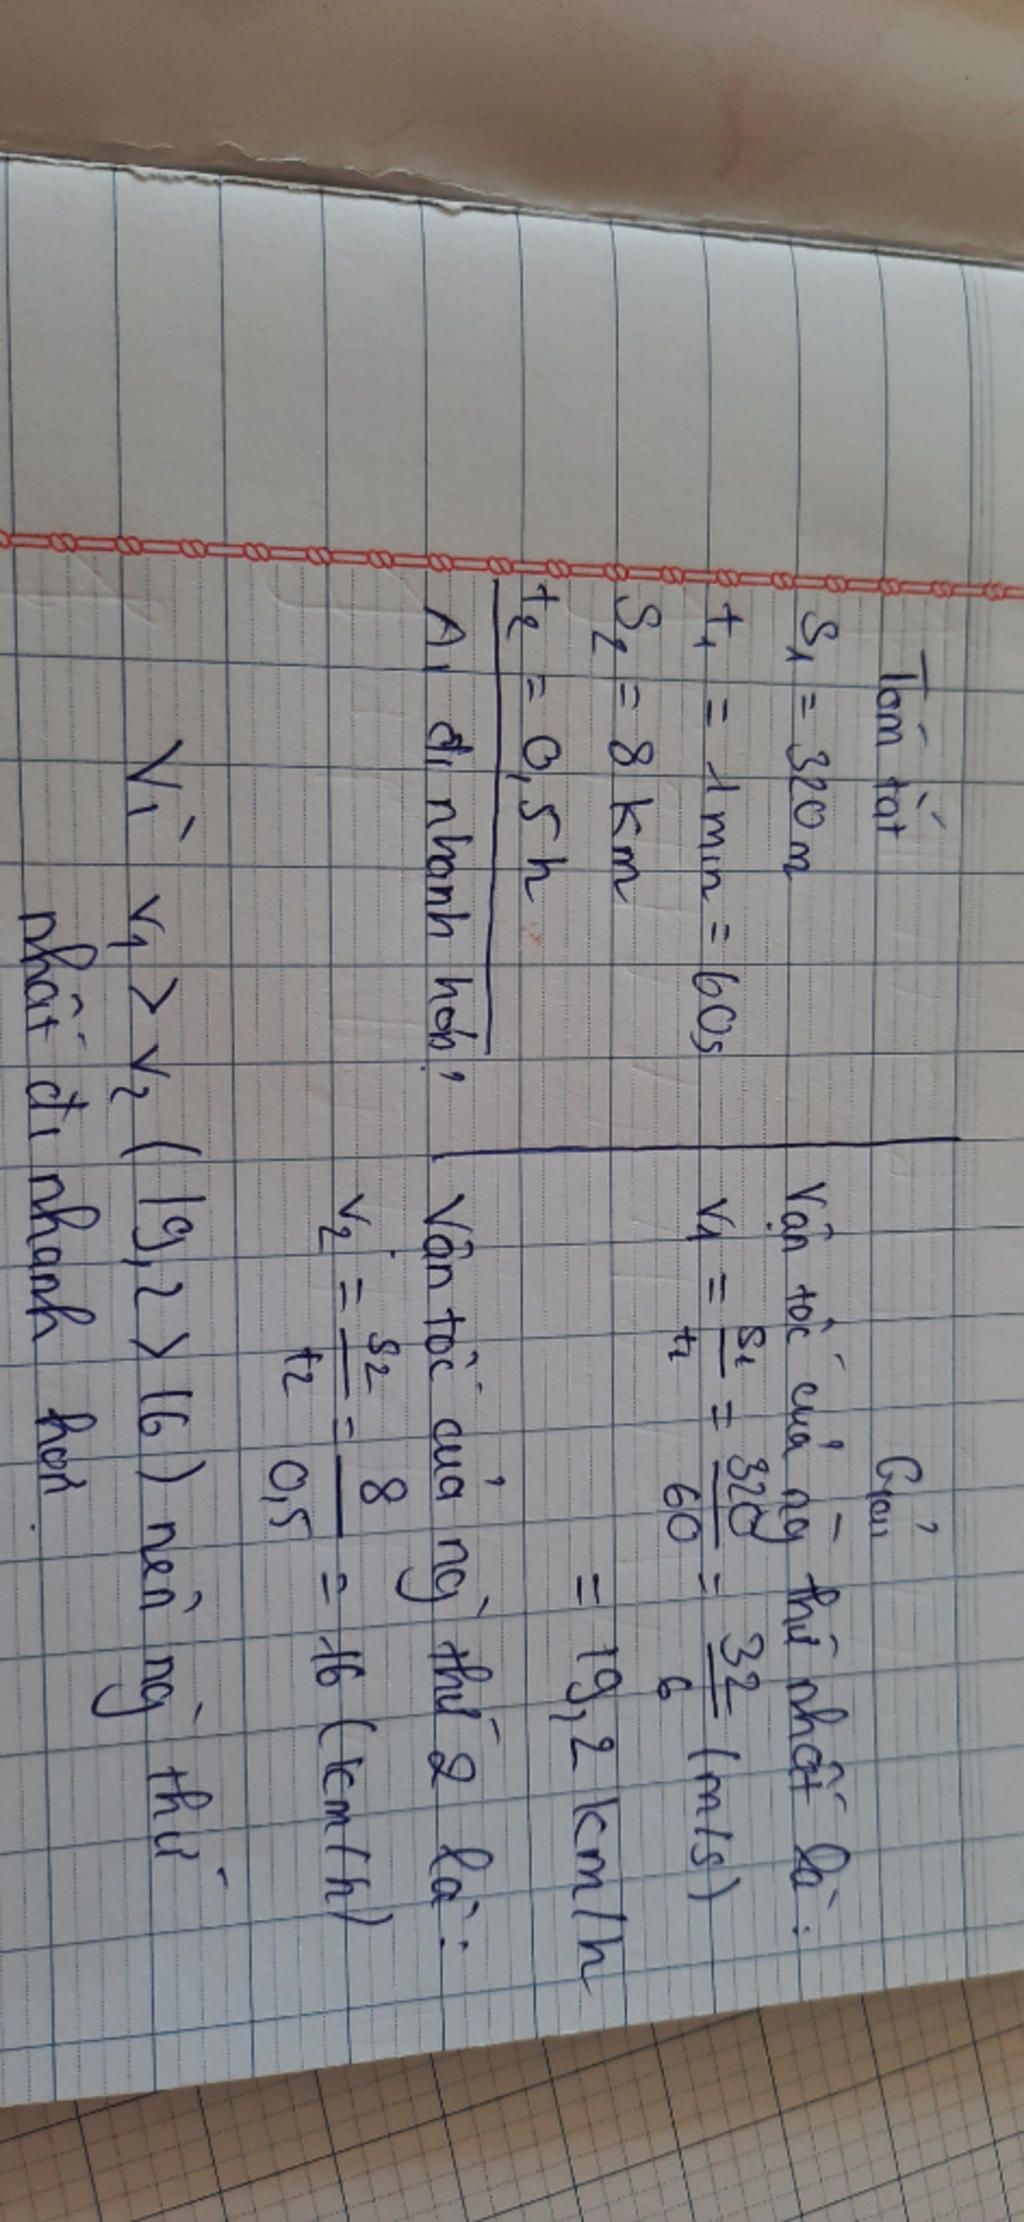 Tóm tắt
S₁ = 320 m
t₁ = 1 min = 60s
S₂ = 8 km
t₂ = 0,5 h
Ai đi nhanh hơn?
Giải
Vận tốc của ng̃ thứ nhất là:
v₁ = s₁/t₁ = 320/60 = 32/6 (m/s)
= 19,2 km/h
Vận tốc của ng̀ thứ 2 là:
v₂ = s₂/t₂ = 8/0,5 = 16 (km/h)
Vì v₁ > v₂ (19,2 > 16) nên ng̀ thứ
nhất đi nhanh hơn.